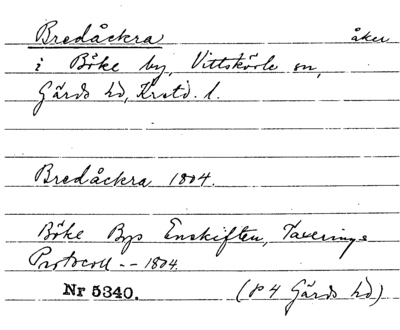 Bredåckra åker
i Böke by, Vittskövle sn,
Gärds hd, Krstd. l.
Bredåckra 1804.
Böke Bys Enskiften, Taxerings
Protocoll -- 1804.
Nr 5340. (P 4 Gärds hd)